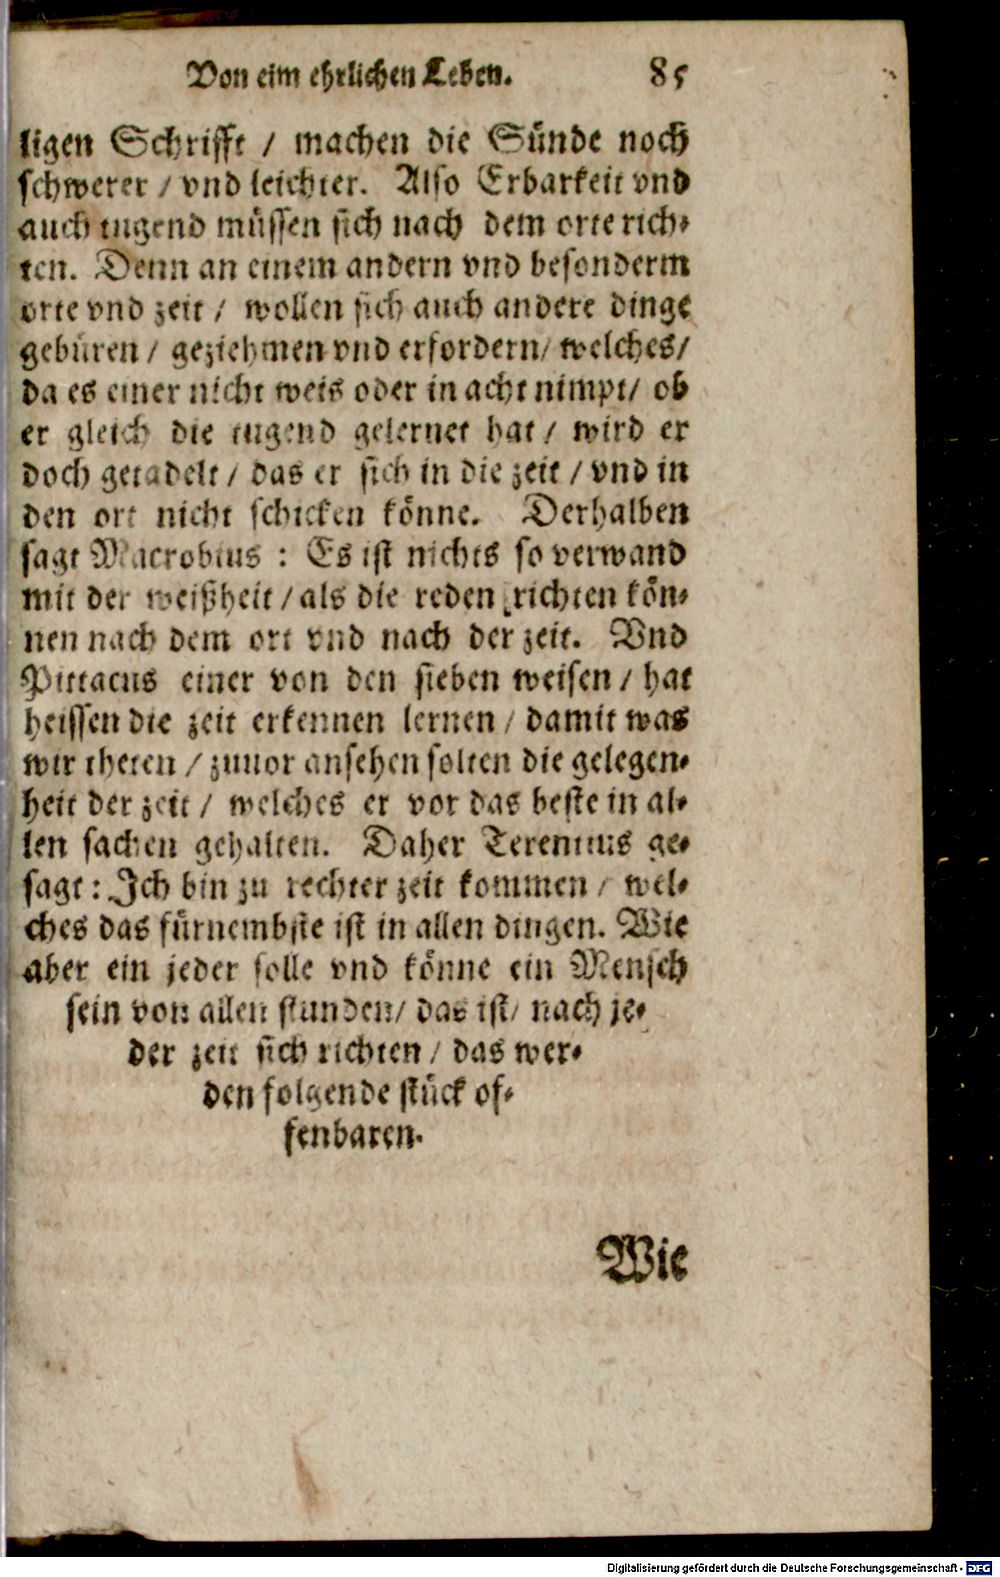 Von eim ehrlichen Leben. 85
ligen Schrifft / machen die Sünde noch
schwerer / vnd leichter. Also Erbarkeit vnd
auch tugend müssen sich nach dem orte rich-
ten. Denn an einem andern vnd besonderm
orte vnd zeit / wollen sich auch andere dinge
gebüren / geziehmen vnd erfordern / welches /
da es einer nicht weis oder in acht nimpt / ob
er gleich die tugend gelernet hat / wird er
doch getadelt / das er sich in die zeit / vnd in
den ort nicht schicken könne. Derhalben
sagt Macrobius : Es ist nichts so verwand
mit der weißheit / als die reden richten kön-
nen nach dem ort vnd nach der zeit. Vnd
Pittacus einer von den sieben weisen / hat
heissen die zeit erkennen lernen / damit was
wir theten / zuuor ansehen solten die gelegen-
heit der zeit / welches er vor das beste in al-
len sachen gehalten. Daher Terentius ge-
sagt : Ich bin zu rechter zeit kommen / wel-
ches das fürnembste ist in allen dingen. Wie
aber ein jeder solle vnd könne ein Mensch
sein von allen stunden / das ist / nach je-
der zeit sich richten / das wer-
den folgende stück of-
fenbaren.
Wie
Digitalisierung gefördert durch die Deutsche Forschungsgemeinschaft - DFG